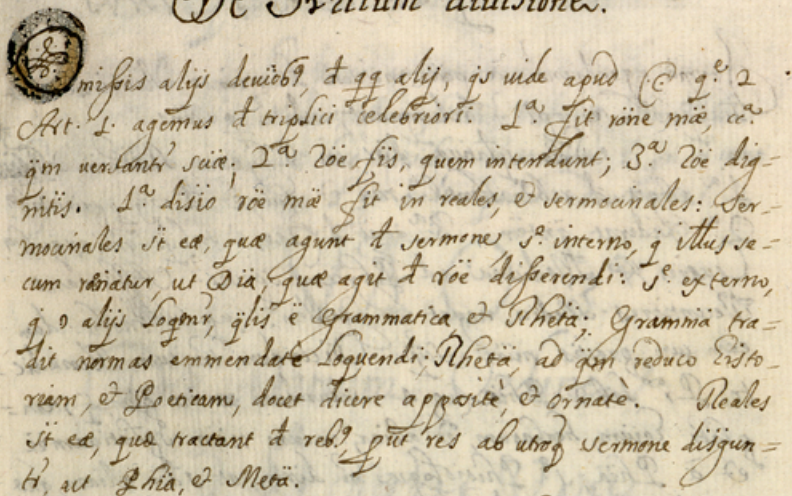 De Sciarum divisione.
Omissis alijs deviobꝯ, đ qq̃ alij, q̃s vide apud C. qᵉ. 2
Art. 1. agemus đ triplici celebriori. 1ᵃ. fit röne mäe, ccᵃ.
q̈m versantr̃ sciæ; 2ᵃ röe fïs, quem intendunt; 3ᵃ. röe dig=
nitïs. 1ᵃ disïo röe mäe fit in reales, et sermocinales: ser=
mocinales s̃t eæ, quæ agunt đ sermone, sᵉ. interno, q̇ itłłus se=
cum rönatur, ut Diä, quæ agit đ röe differendi: sᵉ. externo,
q̇ ꝯ alijs loqmr̃, q̈lis ë Grammatica, et Rhetä; Grammä tra=
dit normas emmendatè loquendi; Rhetä, ad q̈m reduco Histo=
riam, et Poeticam, docet dicere appositè, et ornatè. Reales
s̃t eæ, quæ tractant đ rebꝯ, put res ab utroq̃ sermone disjgun=
tr̃, ut Phiä, et Metä.